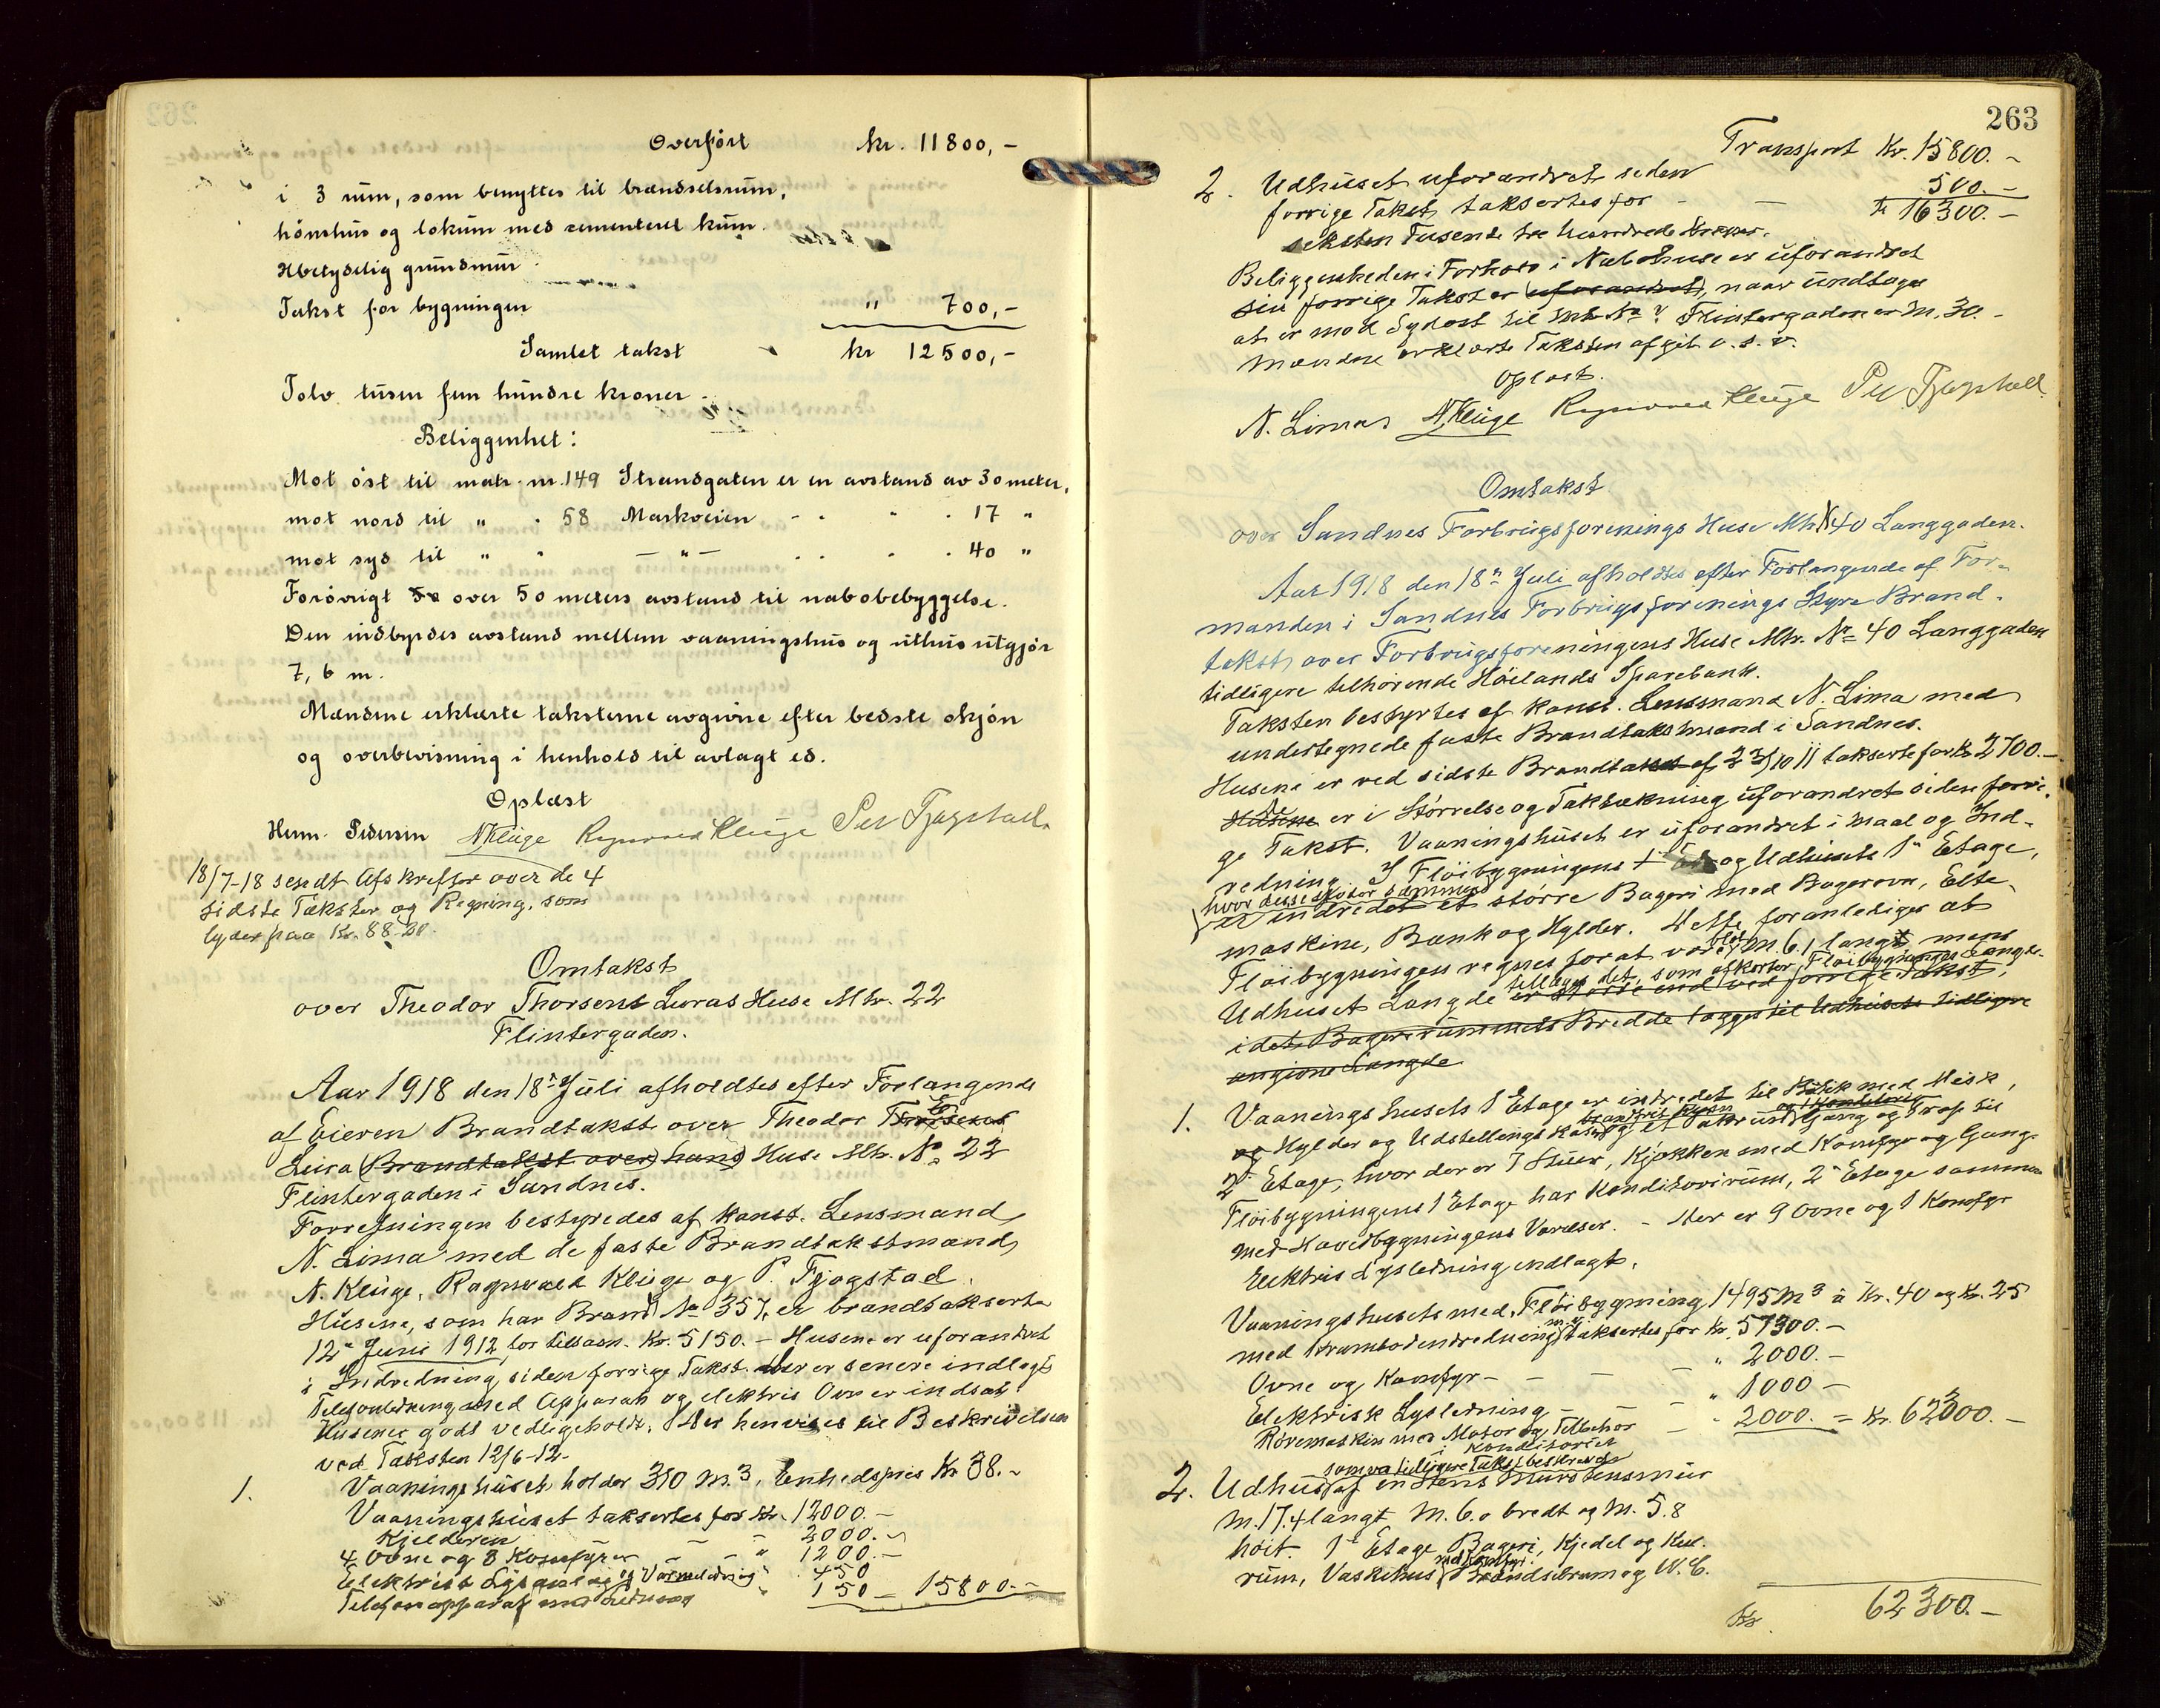 Overført kr. 11800,-
i 3 rum, som benyttes til brændselsrum,
hønshus og lokum med cementeret kum.
Ubetydelig grundmur
Takst for bygningen " 700,-
Samlet takst kr 12500,-
Tolv tusen fem hundre kroner.
Beliggenhet:
Mot øst til matr. nr. 149 Strandgaten er en avstand av 30 meter,
mot nord til " " 58 Markveien - " " " 17 "
mot syd til " " — " — " " " " 40 "
Forøvrigt 50 over 50 meters avstand til nabobebyggelse.
Den indbyrdes avstand mellem vaaningshus og uthus utgjør
7,6 m.
Mændene erklærte taksterne avgivne efter bedste skjøn
og overbevisning i henhold til avlagt ed.
Oplæst
Herm. Pedersen N Kluge Ragnvald Kluge Per Fjogstad
18/7-18 sendt Afskrefter over de 4
sidste Takster og Regning, som
lyder paa Kr. 88.20
Omtakst
over Theodor Thorsens Luras Huse Mtr. 22
Flintergaden.
Aar 1918 den 18de Juli afholdtes efter Forlangende
af Eieren Brandtakst over Theodor Thorsens
Lura (Brandtakst over hans) Huse Mtr. No 22
Flintergaden i Sandnes.
Forretningen bestyredes af konst. Lensmand
N. Lima med de faste Brandtakstmænd
N. Kluge, Ragnvald Kluge og P. Fjogstad.
Husene, som har Brand No 357, er brandtakserte
12te Juni 1912 for tilsam. Kr. 5150.- Husene er uforandret
i Indredning siden forrige Takst. Her er senere indlagt
Telefonledning med Apparat og elektris Ovn er indsat
Husene godt vedligeholdt. Der henvises til Beskrivelsen
ved Taksten 12/6-12-
1. Vaaningshuset holder 310 M.3. Enhedspris Kr 38.-
Vaaningshuset taksertes for Kr. 12000.-
Kjelderen - - " 2000.-
4 Ovne og 3 Komfyrer - - " 1200.-
Elektrisk Lysanlæg og Varmeledning " 450
Telefonapparat med Ledning " 150 - 15800.-
263
Transport Kr. 15800.-
2. Udhuset uforandret siden
forrige Takst, taksertes for - - 500.-
Kr 16300.-
seksten Tusende tre Hundrede Kroner.
Beliggenheden i Forhold i Nabohuse er uforandret
siden forrige Takst er (uforandret), naar undtages
at er mod Sydost til Mtr. No ? Flintergaden er M. 30.-
Mændene erklærte Taksten afgit o. s. v.
Oplæst.
N. Lima N Kluge Ragnvald Kluge Per Fjogstad
Omtakst
over Sandnes Forbrugsforenings Huse Mtr. N 40 Langgaden.
Aar 1918 den 18de Juli afholdtes efter Forlangende af For-
manden i Sandnes Forbrugsforenings Styre Brand-
takst over Forbrugsforeningens Huse Mtr. No 40 Langgaden
tidligere tilhørende Høilands Sparebank.
Taksten bestyrtes af konst. Lensmand N. Lima med
undertegnede faste Brandtakstmænd i Sandnes.
Husene er ved sidste Brandtakst af 23/10 11 takserte for Kr 2700.-
Husene De er i Størrelse og Taktækning uforandret siden forri-
ge Takst. Vaaningshuset er uforandret i Maal og Ind-
redning. I Fløibygningens 1 Et. og Udhusets 1ste Etage,
hvor disse støter sammen
er indredet et større Bageri med Bagerovn, Elte-
maskine, Bænk og Hylder. Dette foranlediger at
Fløibygningen regnes for at være blot M. 6,1 langt, mens
Udhusets Længde tillægges det, som afkorter Fløibygningens Længde.
er større end ved forrige Takst,
idet Bagerirummets Bredde lægges til Udhusets tidligere
angivne Længde
1. Vaaningshusets 1 Etage er indredet til Butik med Disk,
og Hylder og Udstillingskasse og et Pakrum Gang og Trap til
2den Etage, hvor der er 7 Stuer, Kjøkken med Komfyr og Gang.
Fløibygningens 1 Etage har Konditorirum, 2den Etage sammen
med Hovedbygningens Værelser. - Her er 9 Ovne og 1 Komfyr
Elektris Lysledning indlagt.
Vaaningshusets med Fløibygning 1495 M3 à Kr. 40 og Kr. 25
med Krambodindredning m.v. taksertes for Kr. 57300.-
Ovne og Komfyr - - - - " 2000.-
Elektrisk Lysledning - - - " 1000 -
Røremaskin med Motor og Tilbehør - " 2000. = Kr. 62300.-
i Konditoriet
som ved tidligere Takst beskrevet
2. Udhus af en Stens Murstensmur
M. 17.4 langt M. 6.0 bredt og M. 5.8
høit. 1ste Etage Bageri, Kjedel og Kul-
rum, Vaskehus med Komfyr. Brændselsrum og W. C.
Kr. 62300.-